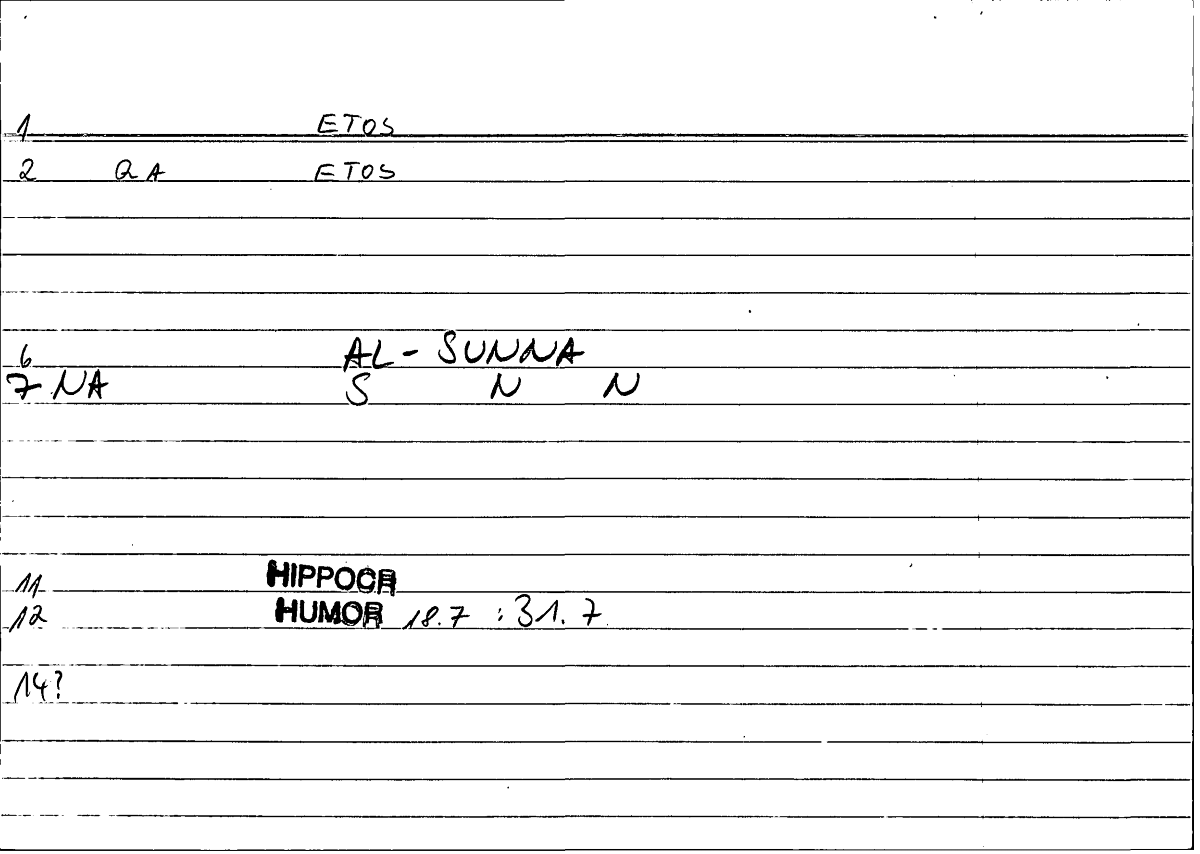 1 ETOS
2 QA ETOS
6 AL - SUNNA
7 NA S N N
11 HIPPOCR
12 HUMOR 18.7 : 31.7
14?